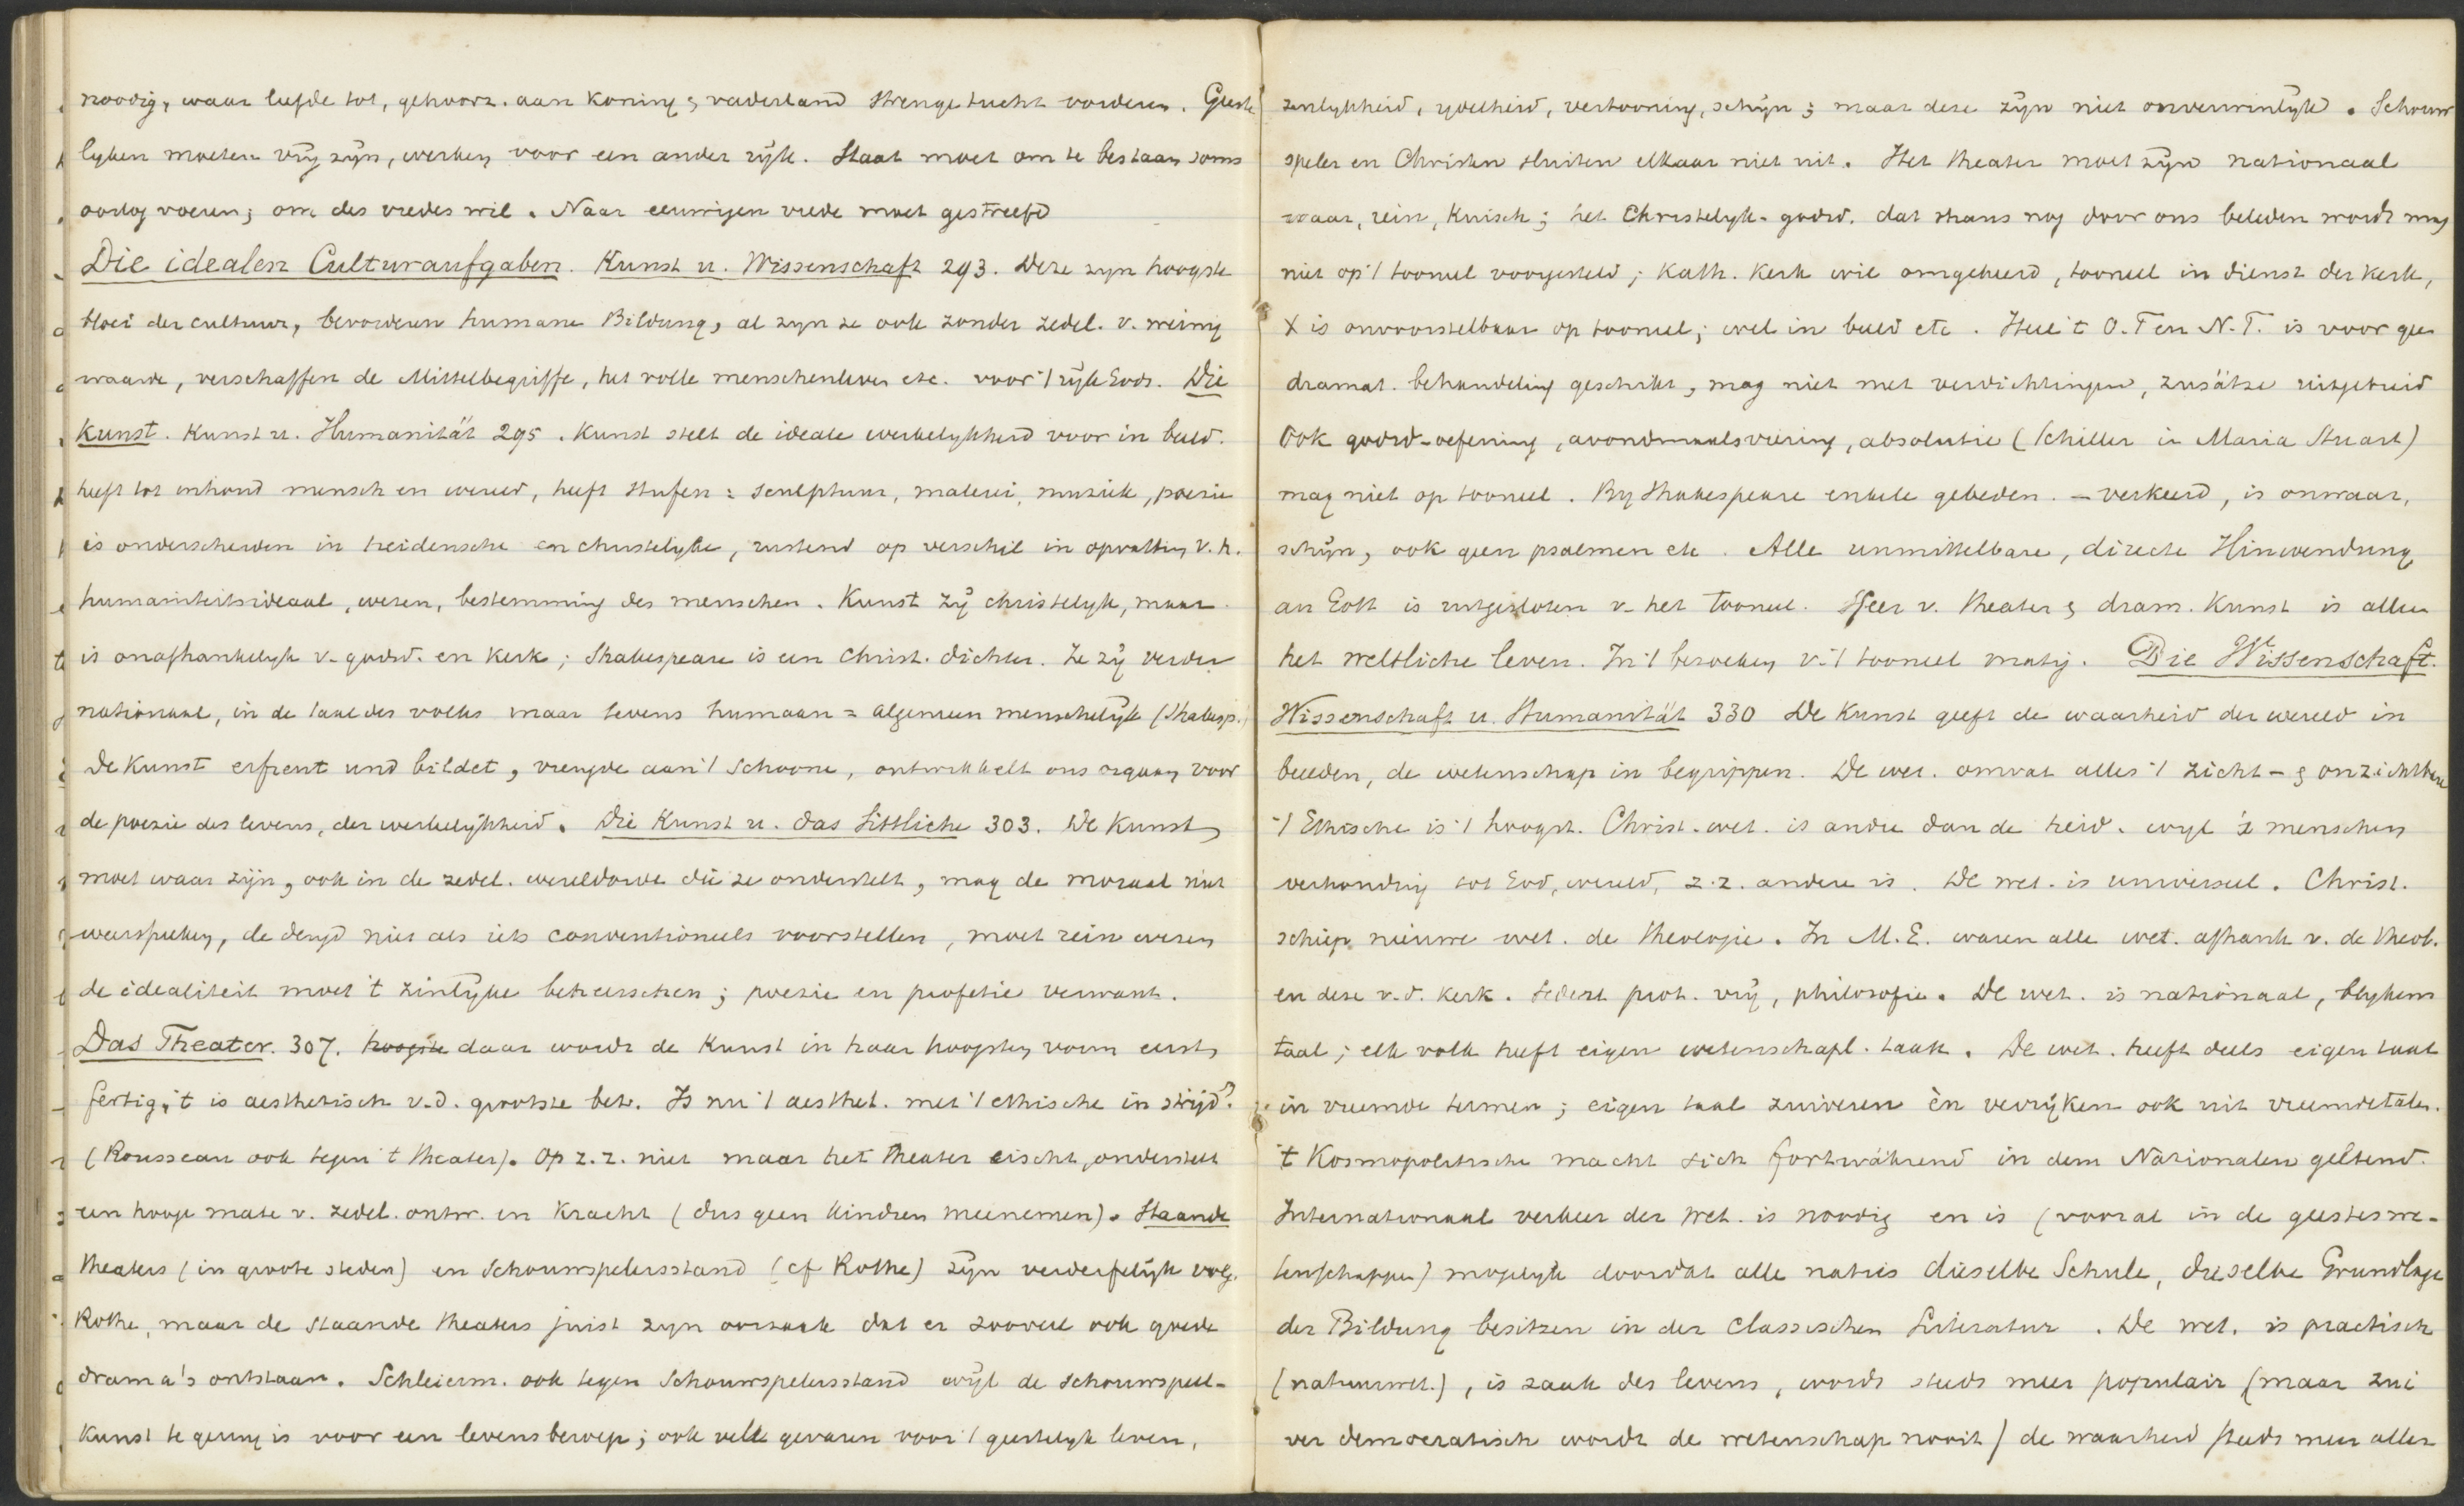 noodig, waar liefde tot, gehoorz. aan Koning & vaderland strenge tucht vorderen. Geeste
lyken moeten vrij zijn, werken voor een ander rijk. Staat moet om te bestaan soms
oorlog voeren; om des vredes wil. Naar eeuwigen vrede moet gestreefd
Die idealen Culturaufgaben. Kunst u. Wissenschaft 293. Deze zyn hoogste
bloei der cultuur, bevorderen humane Bildung, al zyn ze ook zonder zedel. v. weinig
waarde, verschaffen de Mittelbegriffe, het volle menschenleven etc. voor 't rijk Gods. Die
Kunst. Kunst u. Humanität 295. Kunst stelt de ideale werkelykheid voor in beeld.
heeft tot inhoud mensch en wereld, heeft Stufen: sculptuur, malerei, muziek, poezie
is onderscheiden in heidensche en christelyke, rustend op verschil in opvatting v. h.
humaniteitsideaal, wezen, bestemming des menschen. Kunst zij christelyk, maar
is onafhankelyk v. godsd. en Kerk; Shakespeare is een Christ. dichter. Ze zij verder
nationaal, in de taal des volks maar tevens humaan = algemeen menschelijk (Shakesp.)
De Kunst erfreut und bildet, vreugde aan 't Schoone, ontwikkelt ons orgaan voor
de poezie des levens, der werkelijkheid. Die Kunst u. das Sittliche 303. De Kunst
moet waar zijn, ook in de zedel. wereldorde die ze onderstelt, mag de moraal niet
weerspreken, de deugd niet als iets conventioneels voorstellen, moet rein wezen
de idealiteit moet 't zinlijke beheerschen; poezie en profetie verwant.
Das Theater. 307. hoogste daar wordt de Kunst in haar hoogsten vorm eerst
fertig, 't is aesthetisch v. d. grootste bet. Is nu 't aesthet. met 't ethische in strijd?
(Rousseau ook tegen 't theater). Op z. z. niet maar het theater eischt, onderstelt
een hooge mate v. zedel. ontw. en Kracht (dus geen kindren meenemen). Staande
theaters (in groote steden) en Schouwspelersstand (cf Rothe) zijn verderfelijk volg.
Rothe, maar de staande theaters juist zyn oorzaak dat er zooveel ook goede
drama's ontstaan. Schleierm. ook tegen Schouwspelersstand wijl de schouwspeel-
kunst te gering is voor een levensberoep; ook vele gevaren voor 't geestelyk leven,
zinlykheid, ijdelheid, vertooning, schijn; maar deze zijn niet onverwinlijk. Schouw
speler en Christen sluiten elkaar niet uit. Het theater moet zijn nationaal
waar, rein, Kuisch; het Christelyk-godsd. dat thans nog door ons beleden wordt mag
niet op 't tooneel voorgesteld; Kath. Kerk wil omgekeerd, tooneel in dienst der kerk,
X is onvoorstelbaar op tooneel; wel in beeld etc. Heel 't O.T en N.T. is voor geen
dramat. behandeling geschikt, mag niet met verdichtingen, zusätze uitgebreid
Ook godsd-oefening, avondmaalsviering, absolutie (Schiller in Maria Stuart)
mag niet op tooneel. By Shakespeare enkele gebeden. - verkeerd, is onwaar,
schijn, ook geen psalmen etc. Alle unmittelbare, directe Hinwendung
an Gott is uitgesloten v. het tooneel. Sfeer v. theater & dram. Kunst is alleen
het weltliche leven. In 't bezoeken v. 't tooneel matig. Die Wissenschaft.
Wissenschaft u. Humanität 330 De Kunst geeft de waarheid der wereld in
beelden, de wetenschap in begrippen. De wet. omvat alles 't zicht- & onzichtbare
't Ethische is 't hoogst. Christ. wet. is andre dan de heid. wyl 's menschen
verhouding tot God, wereld, z. z. andere is. De wet. is universeel. Christ.
schiep nieuwe wet. de theologie. In M.E. waren alle wet. afhank v. de theol.
en deze v. d. Kerk. Sedert prot. vrij, philosofie. De wet. is nationaal, blykens
taal; elk volk heeft eigen wetenschapl. taak. De wet. heeft deels eigen taal
in vreemde termen; eigen taal zuiveren èn verrijken ook uit vreemde talen.
't Kosmopolitische macht sich fortwährend in dem Nationalen geltend.
Internationaal verkeer der wet. is noodig en is (vooral in de geesteswe-
tenschappen) mogelyk doordat alle naties dieselbe Schule, dieselbe Grundlage
der Bildung besitzen in der Classischen Literatur. De wet. is practisch
(natuurwet.), is zaak des levens, wordt steeds meer populair (maar zui
ver democratisch wordt de wetenschap nooit) de waarheid steeds meer aller